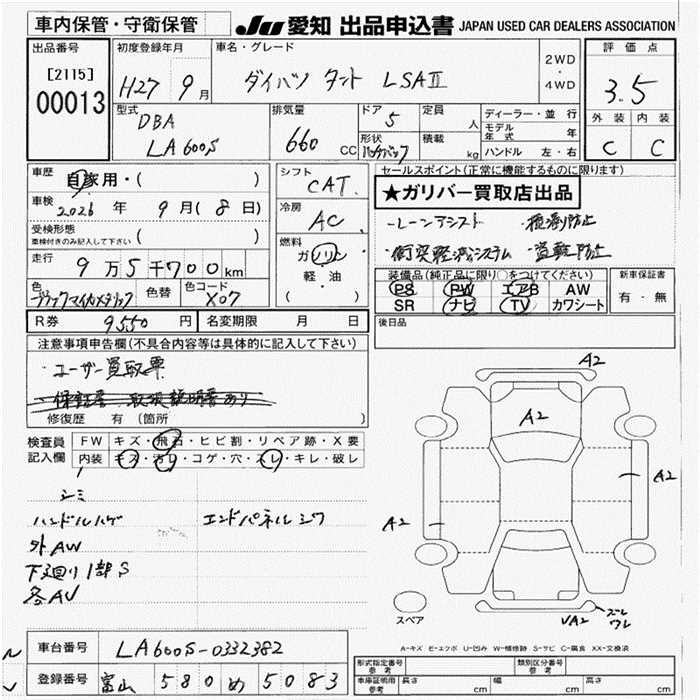 車内保管・守衛保管
JU 愛知 出品申込書 JAPAN USED CAR DEALERS ASSOCIATION
出品番号
[2115]
00013
初度登録年月
H27 9月
車名・グレード
ダイハツ タント L SAⅡ
2WD
・
4WD
評価点
3.5
外装 内装
C C
型式
DBA
LA600S
排気量
660 CC
ドア 5
形状 ハッチバック
定員 人
積載 kg
ディーラー・並行
モデル年式 年
ハンドル 左・右
車歴 自家用・( )
車検 2026年 9月(8日)
受検形態
車検付きのみ記入して下さい ( )
走行 9万5千700km
色 ブラックマイカメタリック
色替
色コード X07
シフト
CAT
冷房
AC
燃料
ガソリン
軽・油
( )
セールスポイント(正常に機能するものに限ります)
★ガリバー買取店出品
・レーンアシスト ・横滑り防止
・衝突軽減システム ・盗難防止
装備品(純正品に限り○をつけてください)
PS PW エアB AW
SR ナビ TV カワシート
新車保証書
有・無
R券 9550円
名変期限 月 日
後日品
注意事項申告欄(不具合内容等は具体的に記入して下さい)
・ユーザー買取車
・保証書 取扱説明書あり
修復歴 有 (箇所 )
検査員記入欄
FW キズ・飛石・ヒビ割・リペア跡・X要
内装 キズ・汚レ・コゲ・穴・スレ・キレ・破レ
シミ
ハンドルハゲ
エンドパネルシワ
外AW
下廻り1部S
各AU
A2
A2
A2
A2
UA2
ズレ
ワレ
スペア
A-キズ E-エクボ U-凹み W-補修跡 S-サビ C-腐食 XX-交換済
車台番号 LA600S-0332382
登録番号 富山 580 め 5083
形式指定番号 参考
類別区分番号 参考
車庫証明用 参考
長さ cm
幅 cm
高さ cm